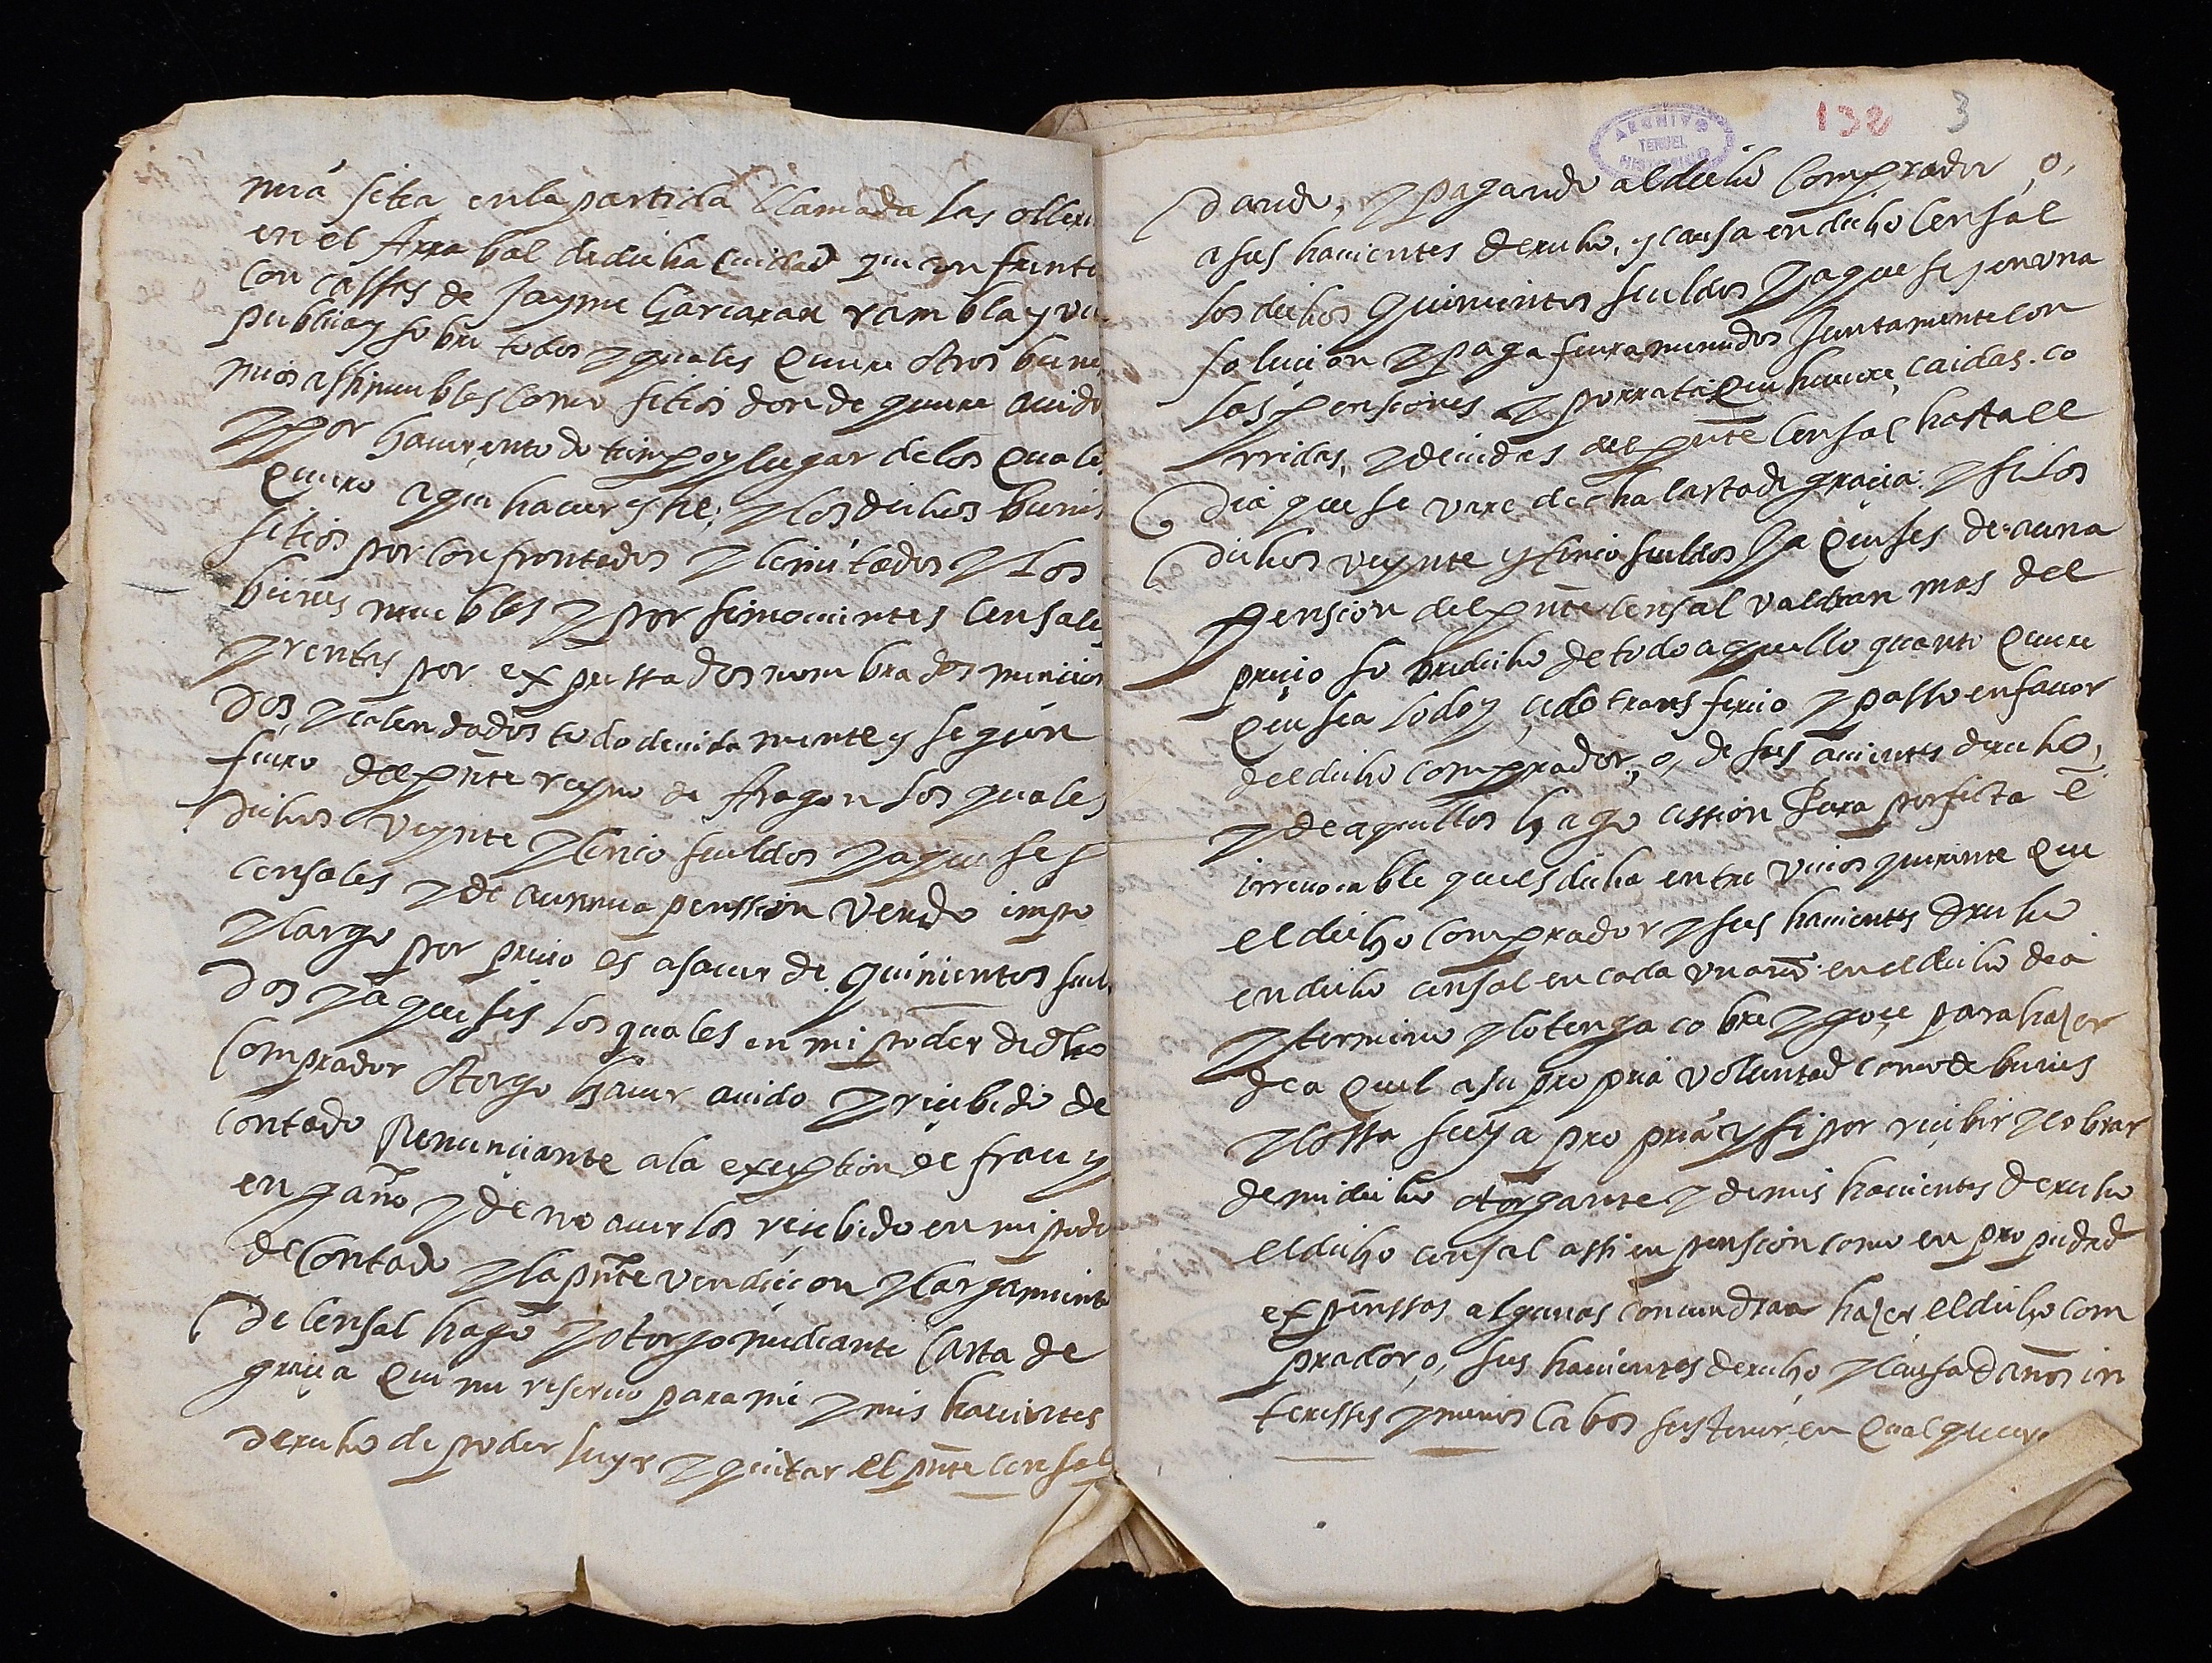 mia sitia en la partida llamada las olleri
en el Arrabal de dicha ciudad que confrenta
con cassas de Jayme Garcaran rambla y via
publica y sobre todos y quales quiere otros biene
mios assi muebles como sitios donde quiere auidos
y por hauer en todo tiempo y lugar de los quales
quiero aqui hauer y he, y los dichos bienes
sitios por confrontados y limitados y los
bienes muebles y por semouientes censales
y rentas por expressados nombrados mencion
dos, y calendados todo deuidamente y segun
fuero del pnte reyno de Aragon los quales
dichos veynte y cinco sueldos jaqueses
censales y de annua penssion vendo impo
y cargo por precio es a sauer de quinientos suel
dos jaqueses los quales en mi poder de dho
comprador otorgo hauer auido y recebido de
contado Renunciante a la exception de frau y
engaño y de no auerlos recebido en mi pode
de contado y la pnte vendicion y cargamiento
de censal hago y otorgo mediante carta de
gracia que me reseruo para mi y mis hauientes
derecho de poder luyr y quitar el pnte censal
ARCHIVO
TERUEL
HISTORICO
130 3
dando, y pagando al dicho comprador, o,
a sus hauientes derecho, y causa en dicho censal
los dichos quinientos sueldos jaqueses en vna
solucion y paga fueramenudos juntamente con
las pensiones y porratas que haura caidas, co
rridas, y deuidas del pnte censal hasta el
dia que se vare dicha carta de gracia: y si los
dichos veynte y cinco sueldos jaqueses de anna
pension del pnte censal valdran mas del
precio sobredicho de todo aquello quanto quiere
que sea lo doy cedo transfiero y passo en fauor
del dicho comprador, o, de sus auientes derecho,
y de aquellos hago cession pura perfecta e
irreuocable que es dicha entre viuos y quiente que
el dicho comprador y sus hauientes drecho
en dicho censal en cada vn año en el dicho dia
y termino y lo tenga cobre y goce para hazer
de aquel a su propria voluntad como de bienes
y cossa suya propria y si por recibir y cobrar
de mi dicho otorgante y de mis hauientes derecho
el dicho censal assi en pension como en propiedad
expenssas algunas conuendran hazer el dicho com
prador, o, sus hauientes derecho, y causa daños in
teresses y menos cabos sustener en qual quiere